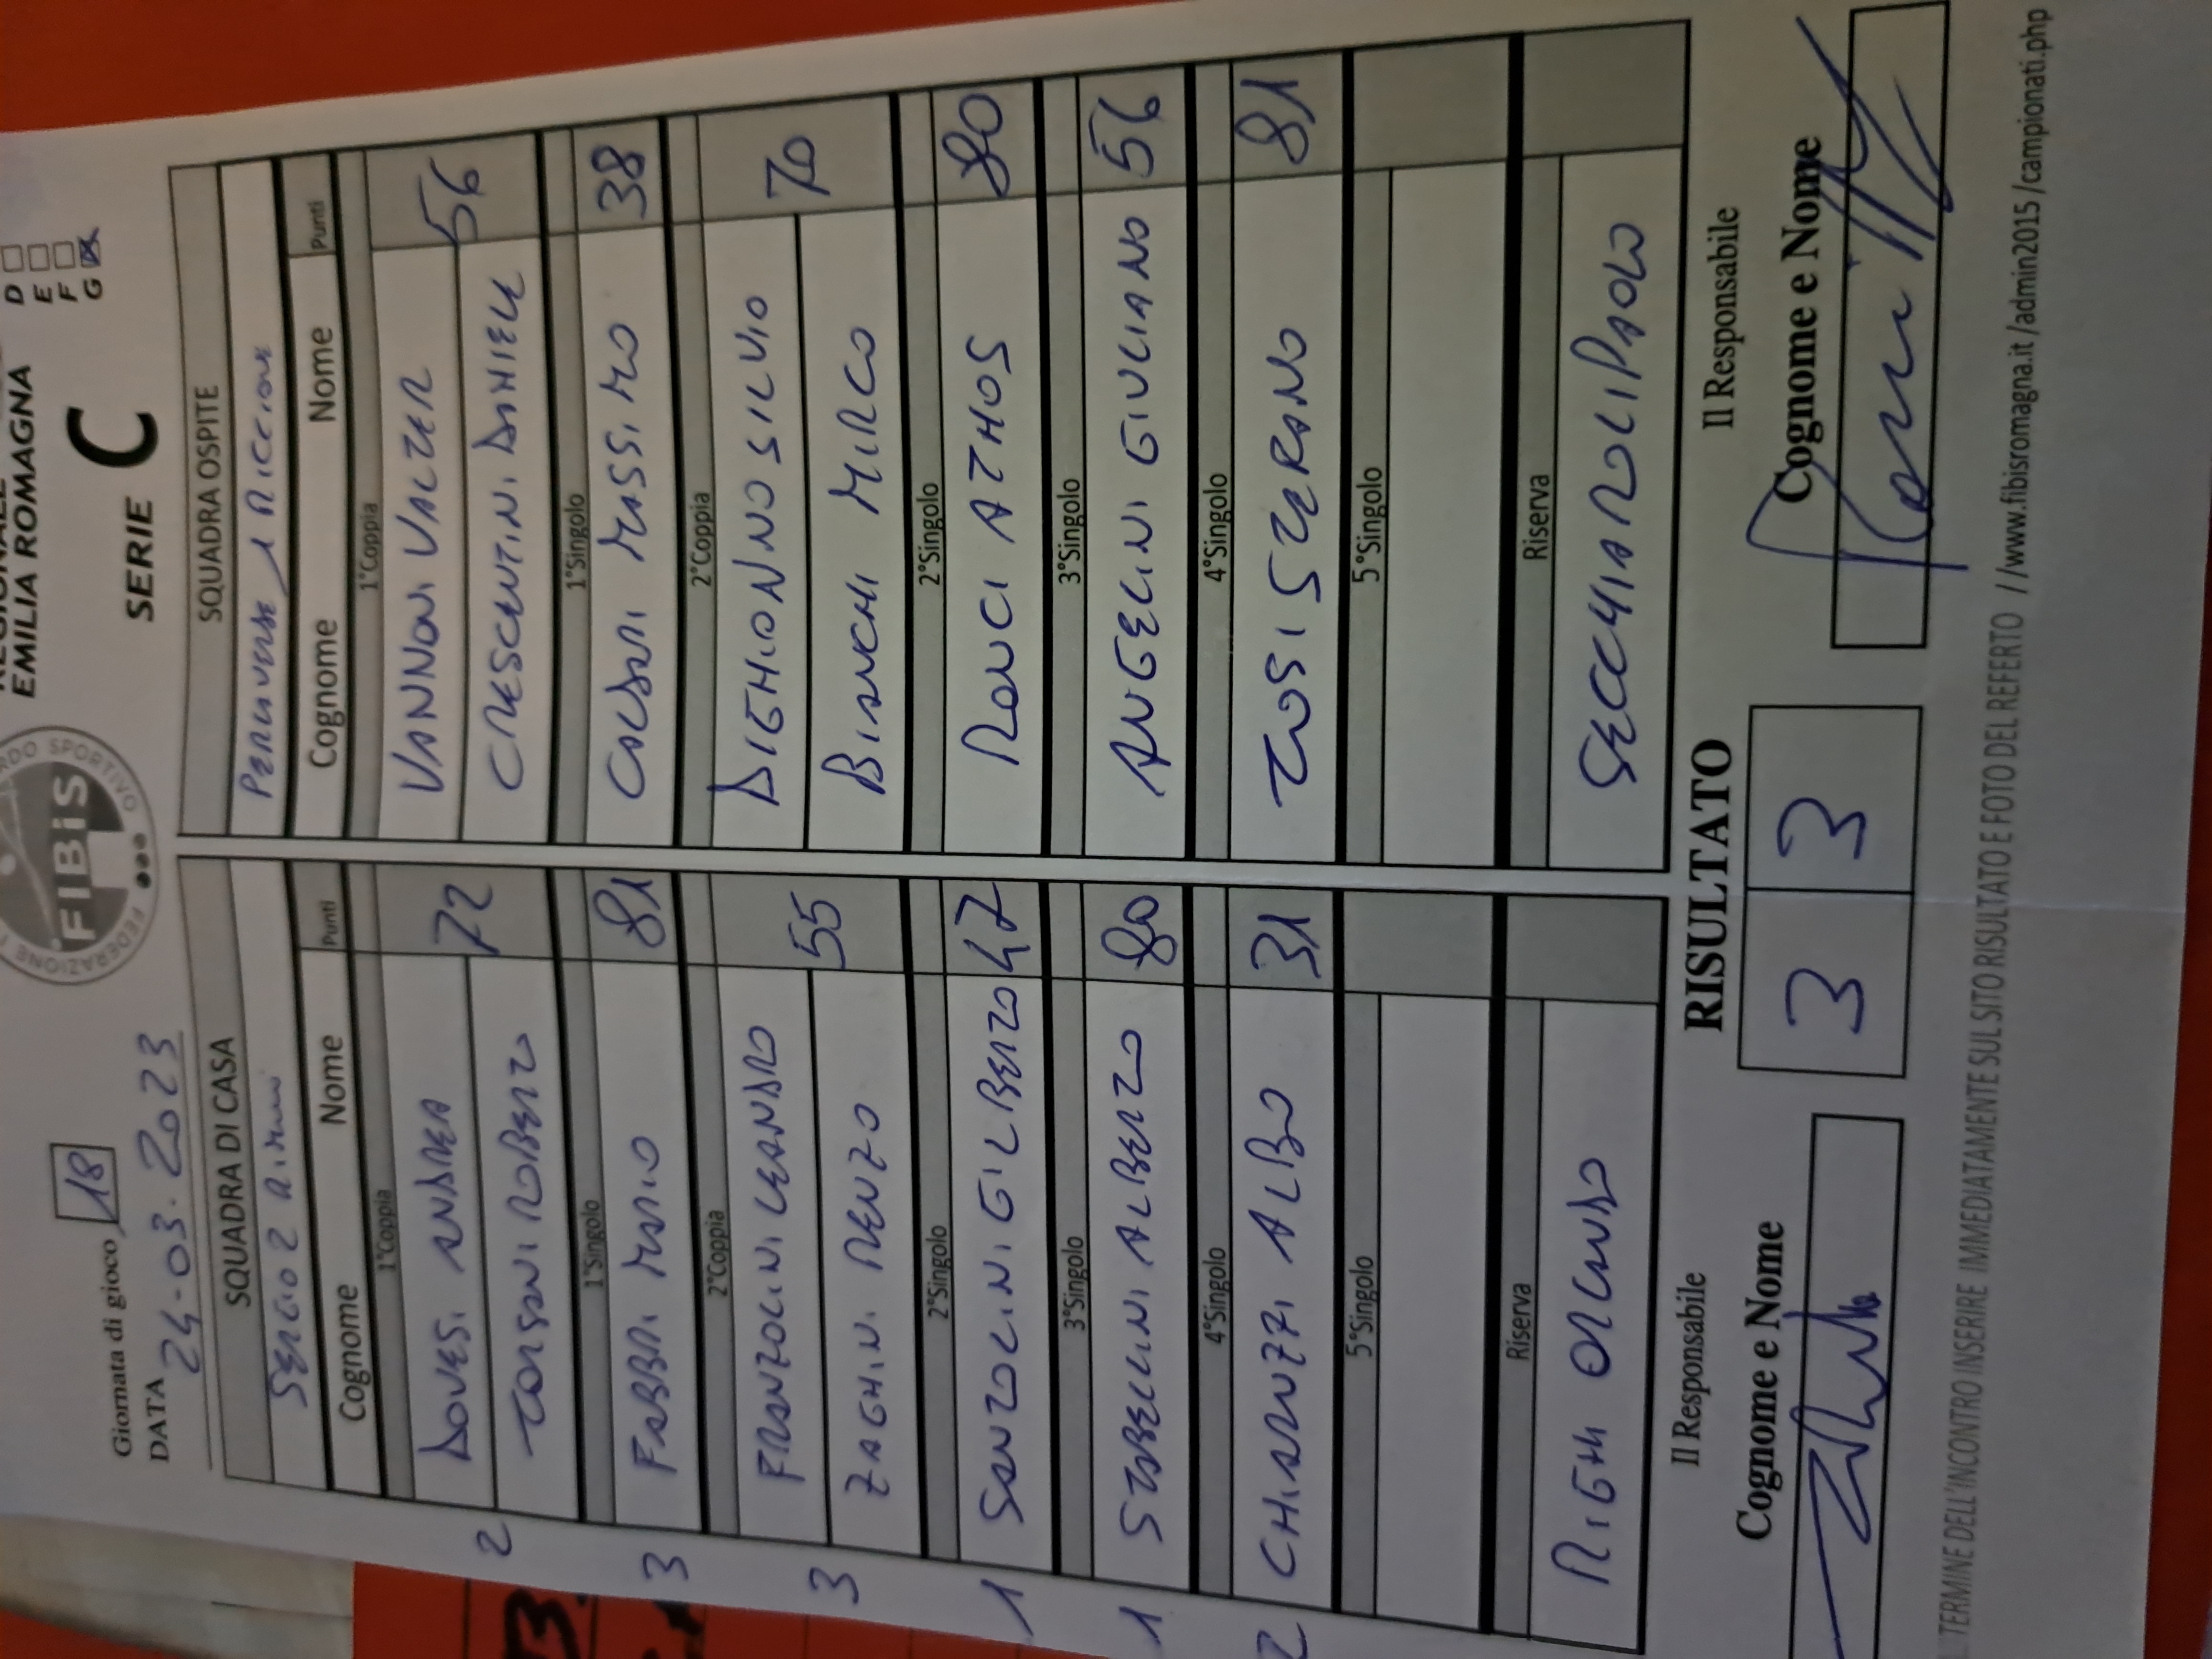 EMILIA ROMAGNA
SERIE C
D
E
F
G
FIBiS
Giornata di gioco 18
DATA 24-03-2023
SQUADRA DI CASA
Cognome Nome Punti
1°Coppia
72
1°Singolo
FABBRI MARIO 81
2°Coppia
FRANZOLINI LEANDRO
ZAGHINI RENZO
55
2°Singolo
SANZOLINI GILBERTO 47
3°Singolo
STABELLINI ALBERTO 80
4°Singolo
CHIARUZZI ALDO 31
5°Singolo
Riserva
RIGHI ORLANDO
SQUADRA OSPITE
Cognome Nome Punti
1°Coppia
VANNONI VALTER
CRESCENTINI DANIELE
56
1°Singolo
38
2°Coppia
BIANCHI MIRCO
70
2°Singolo
RONCI ATHOS 80
3°Singolo
ANGELINI GIULIANO 56
4°Singolo
TOSI STEFANO 81
5°Singolo
Riserva
SECCHIAROLI PAOLO
2
3
3
1
1
2
RISULTATO
3 3
Il Responsabile
Cognome e Nome
Il Responsabile
Cognome e Nome
TERMINE DELL'INCONTRO INSERIRE IMMEDIATAMENTE SUL SITO RISULTATO E FOTO DEL REFERTO //www.fibisromagna.it/admin2015/campionati.php